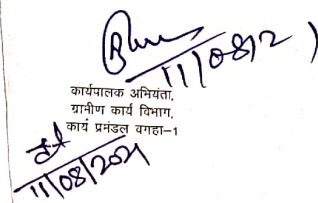 11/08/21
कार्यपालक अभियंता,
ग्रामीण कार्य विभाग,
कार्य प्रमंडल वगहा-1
11/08/2021